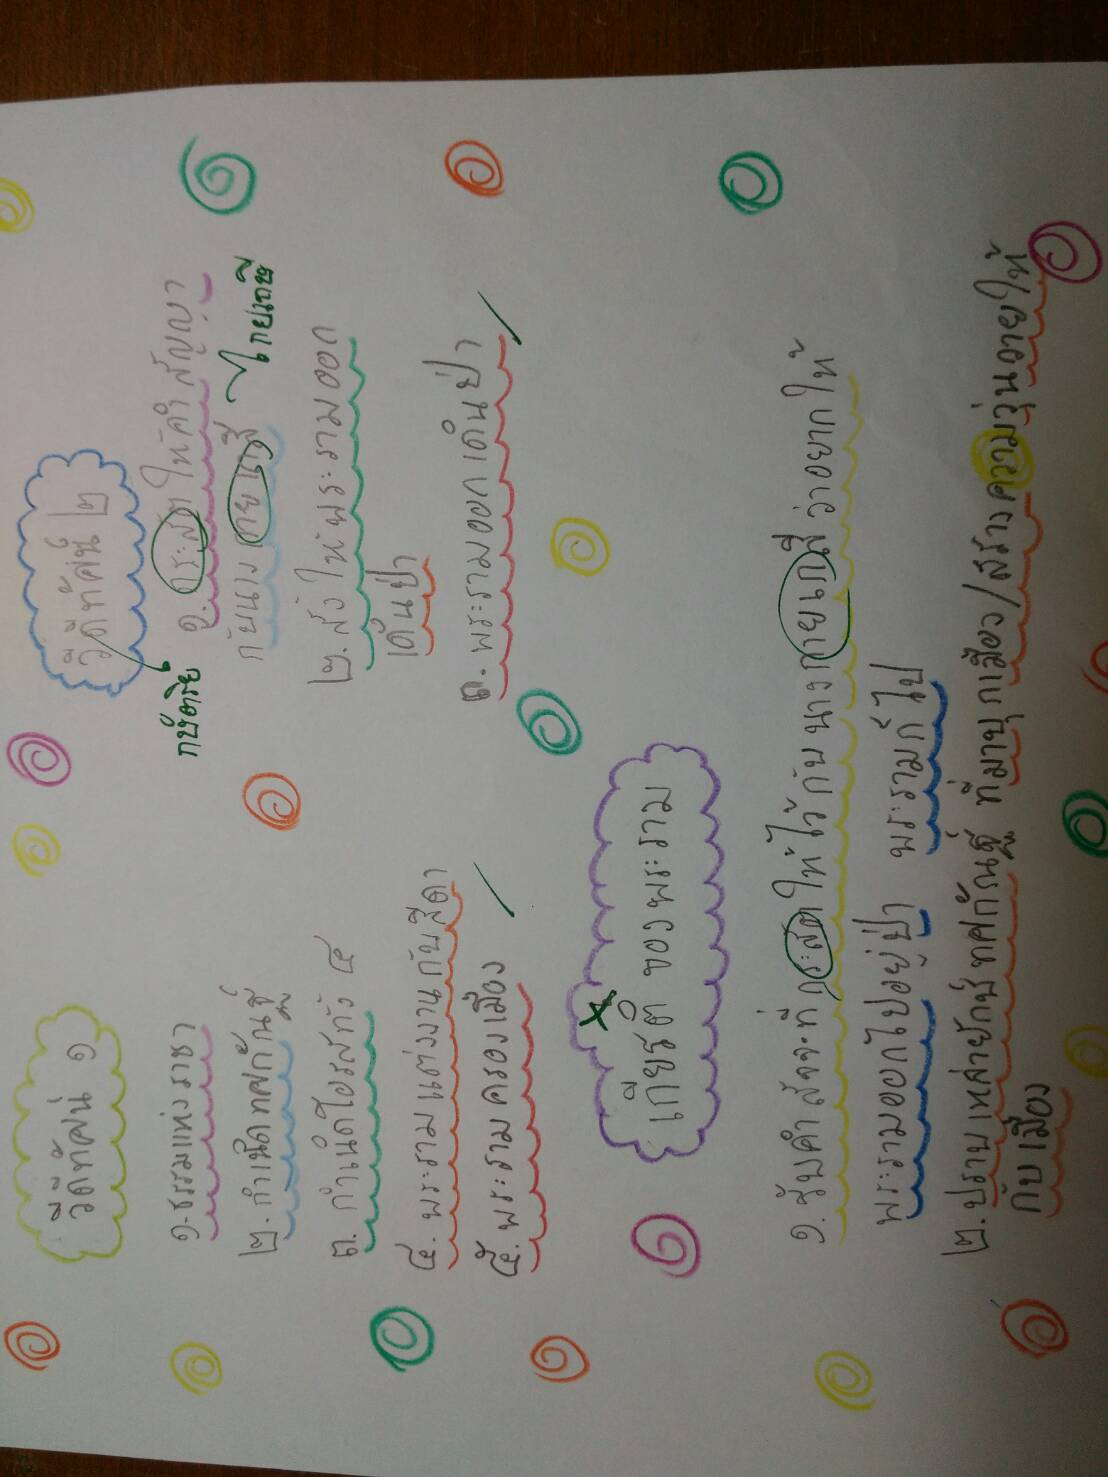 วีดีทัศน์ ๑
๑.ธรรมแห่งราชา
๒.กำเนิดทศกัณฐ์
๓. กำเนิดโอรสทั้ง ๔
๔. พระรามแต่งงานกับสีดา
๕. พระราม ครองเมือง
วีดีทัศน์ ๒
กษัตริย์
๑. กระสตให้คำสัญญา
กับนาง
ไกยเกษี
๒. สั่งให้พระรามออก
เดินป่า
๓. พระรามออกเดินป่า
เกียรติ ของพระราม
๑. รับคำสัจจะที่ กระสตให้ไว้กับนาง ว่าอยากให้
พระรามออกไปอยู่ป่า พระรามก็ไป
๒. ปราบเหล่ายักษ์ทศกัณฐ์ ที่มาบุกเมือง/สร้างความวุ่นวายให้
กับเมือง